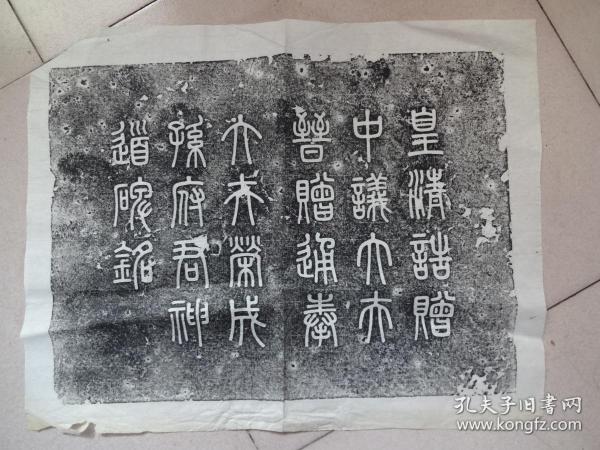 皇清誥贈
中議大夫
晉贈通奉
大夫榮成
孫府君神
道碑銘
孔夫子旧書网
www.kongfz.com